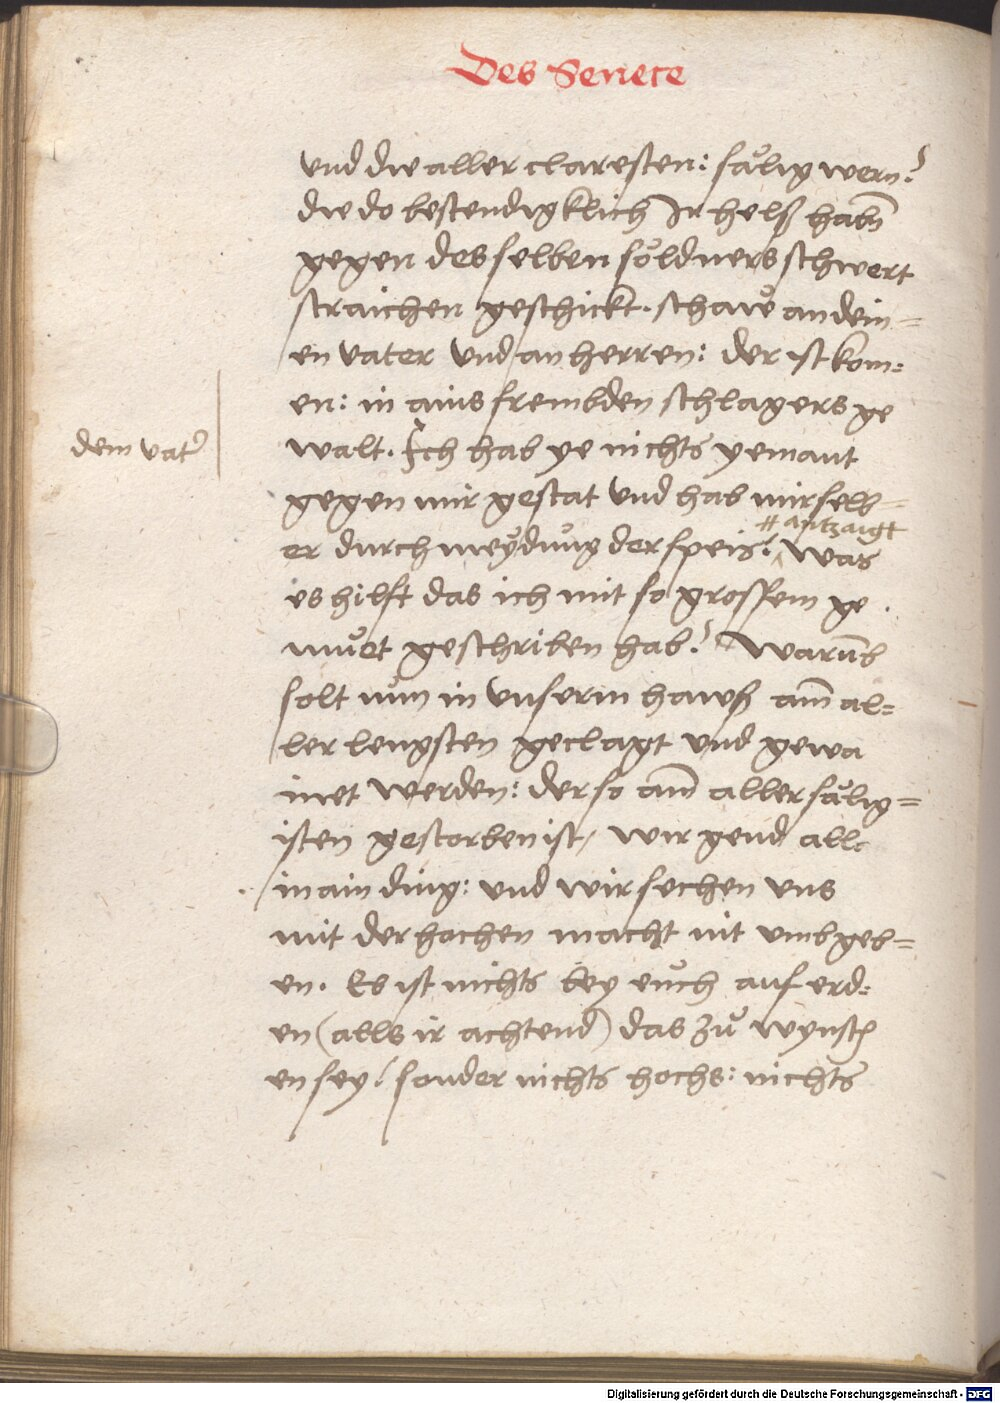 Des Senece
und die aller claresten: såͤlig wern?
die do bestendigklich Ir helß habn̄
gegen desselben soͤldners schwert
straichen geschickt. schaẘ an dein=
en vater und an herren: der ist kom=
en: in ains frembden schlagers ge
walt. Ich hab ye nichts yemant
dem vatʼ
gegen mir gestat und hab mir selb=
antzaigt
er durch meydůng der speis? was
es hilft das ich mit so grossem ge
muͤet geschriben hab? Warūb
solt nůn in unserm hawß am̄ al=
ler lengsten geclagt und gewa
inet werden: der so am̄ aller såͤlig=
isten gestorben ist/ wir gend all=
in ain ding: und wir sechen uns
mit der hochen macht nit umbgeb=
en. Es ist nichts bey eůch auf erd=
en (alls ir achtend) das zů wynsch
en sey/ sonder nichts hochs: nichts
Digitalisierung gefördert durch die Deutsche Forschungsgemeinschaft - DFG